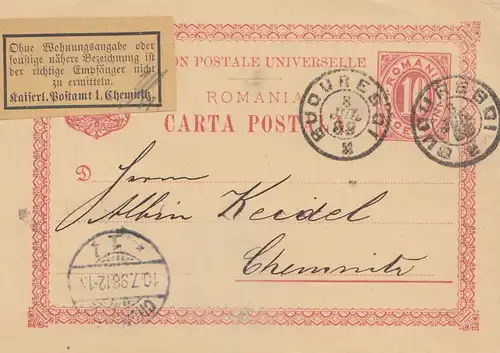 Ohne Wohnungsangabe oder
sonstige nähere Bezeichnung ist
der richtige Empfänger nicht
zu ermitteln.
Kaiserl. Postamt 1. Chemnitz.
ON POSTALE UNIVERSELLE
ROMANIA
CARTA POST
ROMANIA
10
BUCURESCI
8
IUL
98
BUCURESCI
D
Herrn
Albin Keidel
Chemnitz
10.7.98.12-1